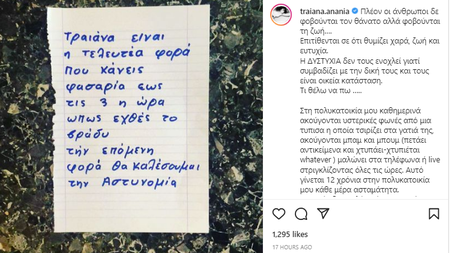 Τραιάνα είναι
η τελευτέα φορά
που κάνεις
φασαρία εως
τις 3 η ώρα
ωπως εχθές το
βράδυ
την επόμενη
φορά θα καλέσουμαι
την Αστυνομία
traiana.anania Πλέον οι άνθρωποι δε
φοβούνται τον θάνατο αλλά φοβούνται
τη ζωή....
Επιτίθενται σε ότι θυμίζει χαρά, ζωή και
ευτυχία.
Η ΔΥΣΤΥΧΙΑ δεν τους ενοχλεί γιατί
συμβαδίζει με την δική τους και τους
είναι οικεία κατάσταση.
Τι θέλω να πω .....
Στη πολυκατοικία μου καθημερινά
ακούγονται υστερικές φωνές από μια
τυπισα η οποία τσιρίζει στα γατιά της,
ακούγονται μπαμ και μπουμ (πετάει
αντικείμενα και χτυπάει-χτυπιέται
whatever ) μαλώνει στα τηλέφωνα ή live
στριγκλίζοντας όλες τις ώρες. Αυτό
γίνεται 12 χρόνια στην πολυκατοικία
μου κάθε μέρα ασταμάτητα.
1,295 likes
17 HOURS AGO